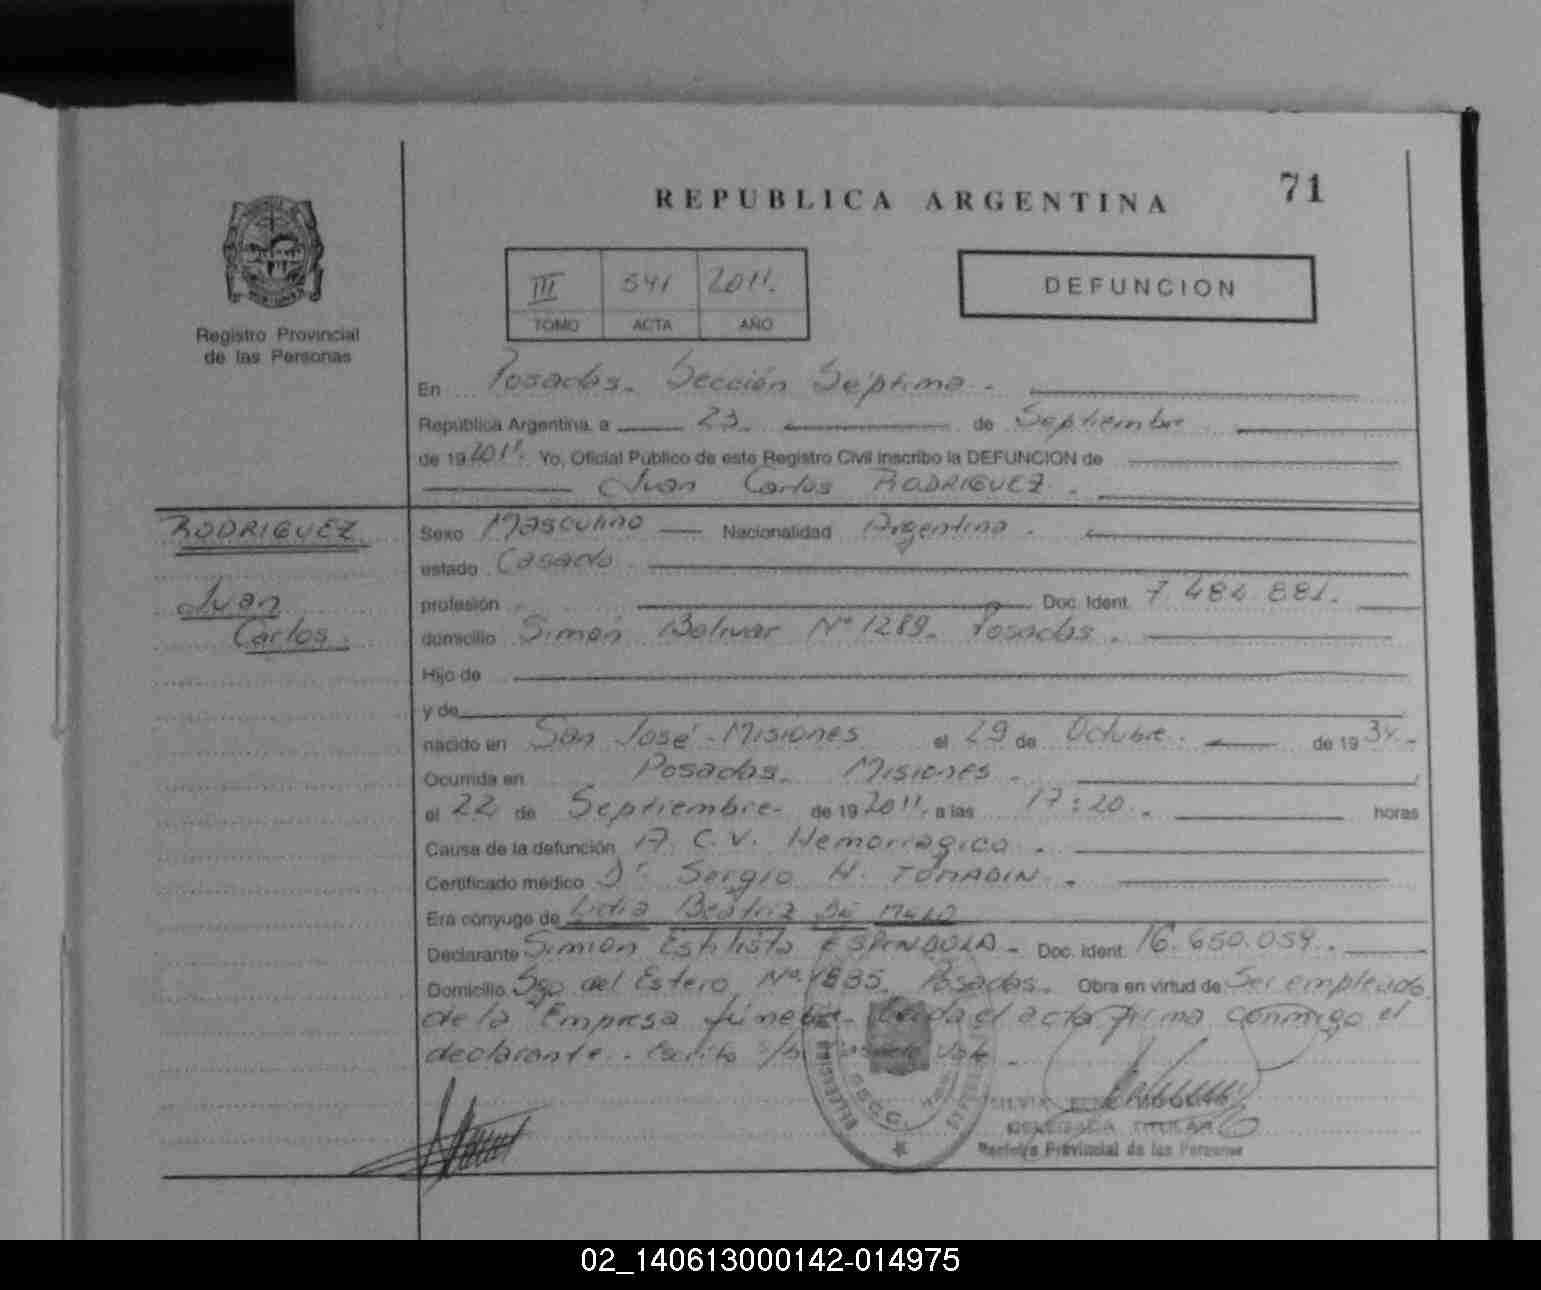 REPUBLICA ARGENTINA
71
III 541 2011.
TOMO ACTA AÑO
DEFUNCION
Registro Provincial
de las Personas
En Posadas. Sección Séptima.
República Argentina, a 23. de Septiembre
de 19 2011. Yo, Oficial Público de este Registro Civil inscribo la DEFUNCION de
Juan Carlos RODRIGUEZ.
RODRIGUEZ
Juan
Carlos.
Sexo Masculino Nacionalidad Argentina.
estado Casado
profesión Doc. Ident. 7.484.881.
domicilio Simón Bolivar Nº 1289. Posadas.
Hijo de
y de
nacido en San José - Misiones el 29 de Octubre. de 19 34.
Ocurrida en Posadas. Misiones.
el 22 de Septiembre. de 19 2011. a las 17:20. horas
Causa de la defunción A.C.V. Hemorrágico.
Certificado médico Dr. Sergio H. TOMADIN.
Era cónyuge de Lidia Beatriz
Declarante Simión ESPINDOLA - Doc. Ident. 16.650.059.
Domicilio Sgo del Estero Nº 1835. Posadas. Obra en virtud de Ser empleado
de la Empresa fúnebre. Leída el acta firma conmigo el
declarante. Escrito s/b
DELEGADA TITULAR
Registro Provincial de las Personas
02_140613000142-014975